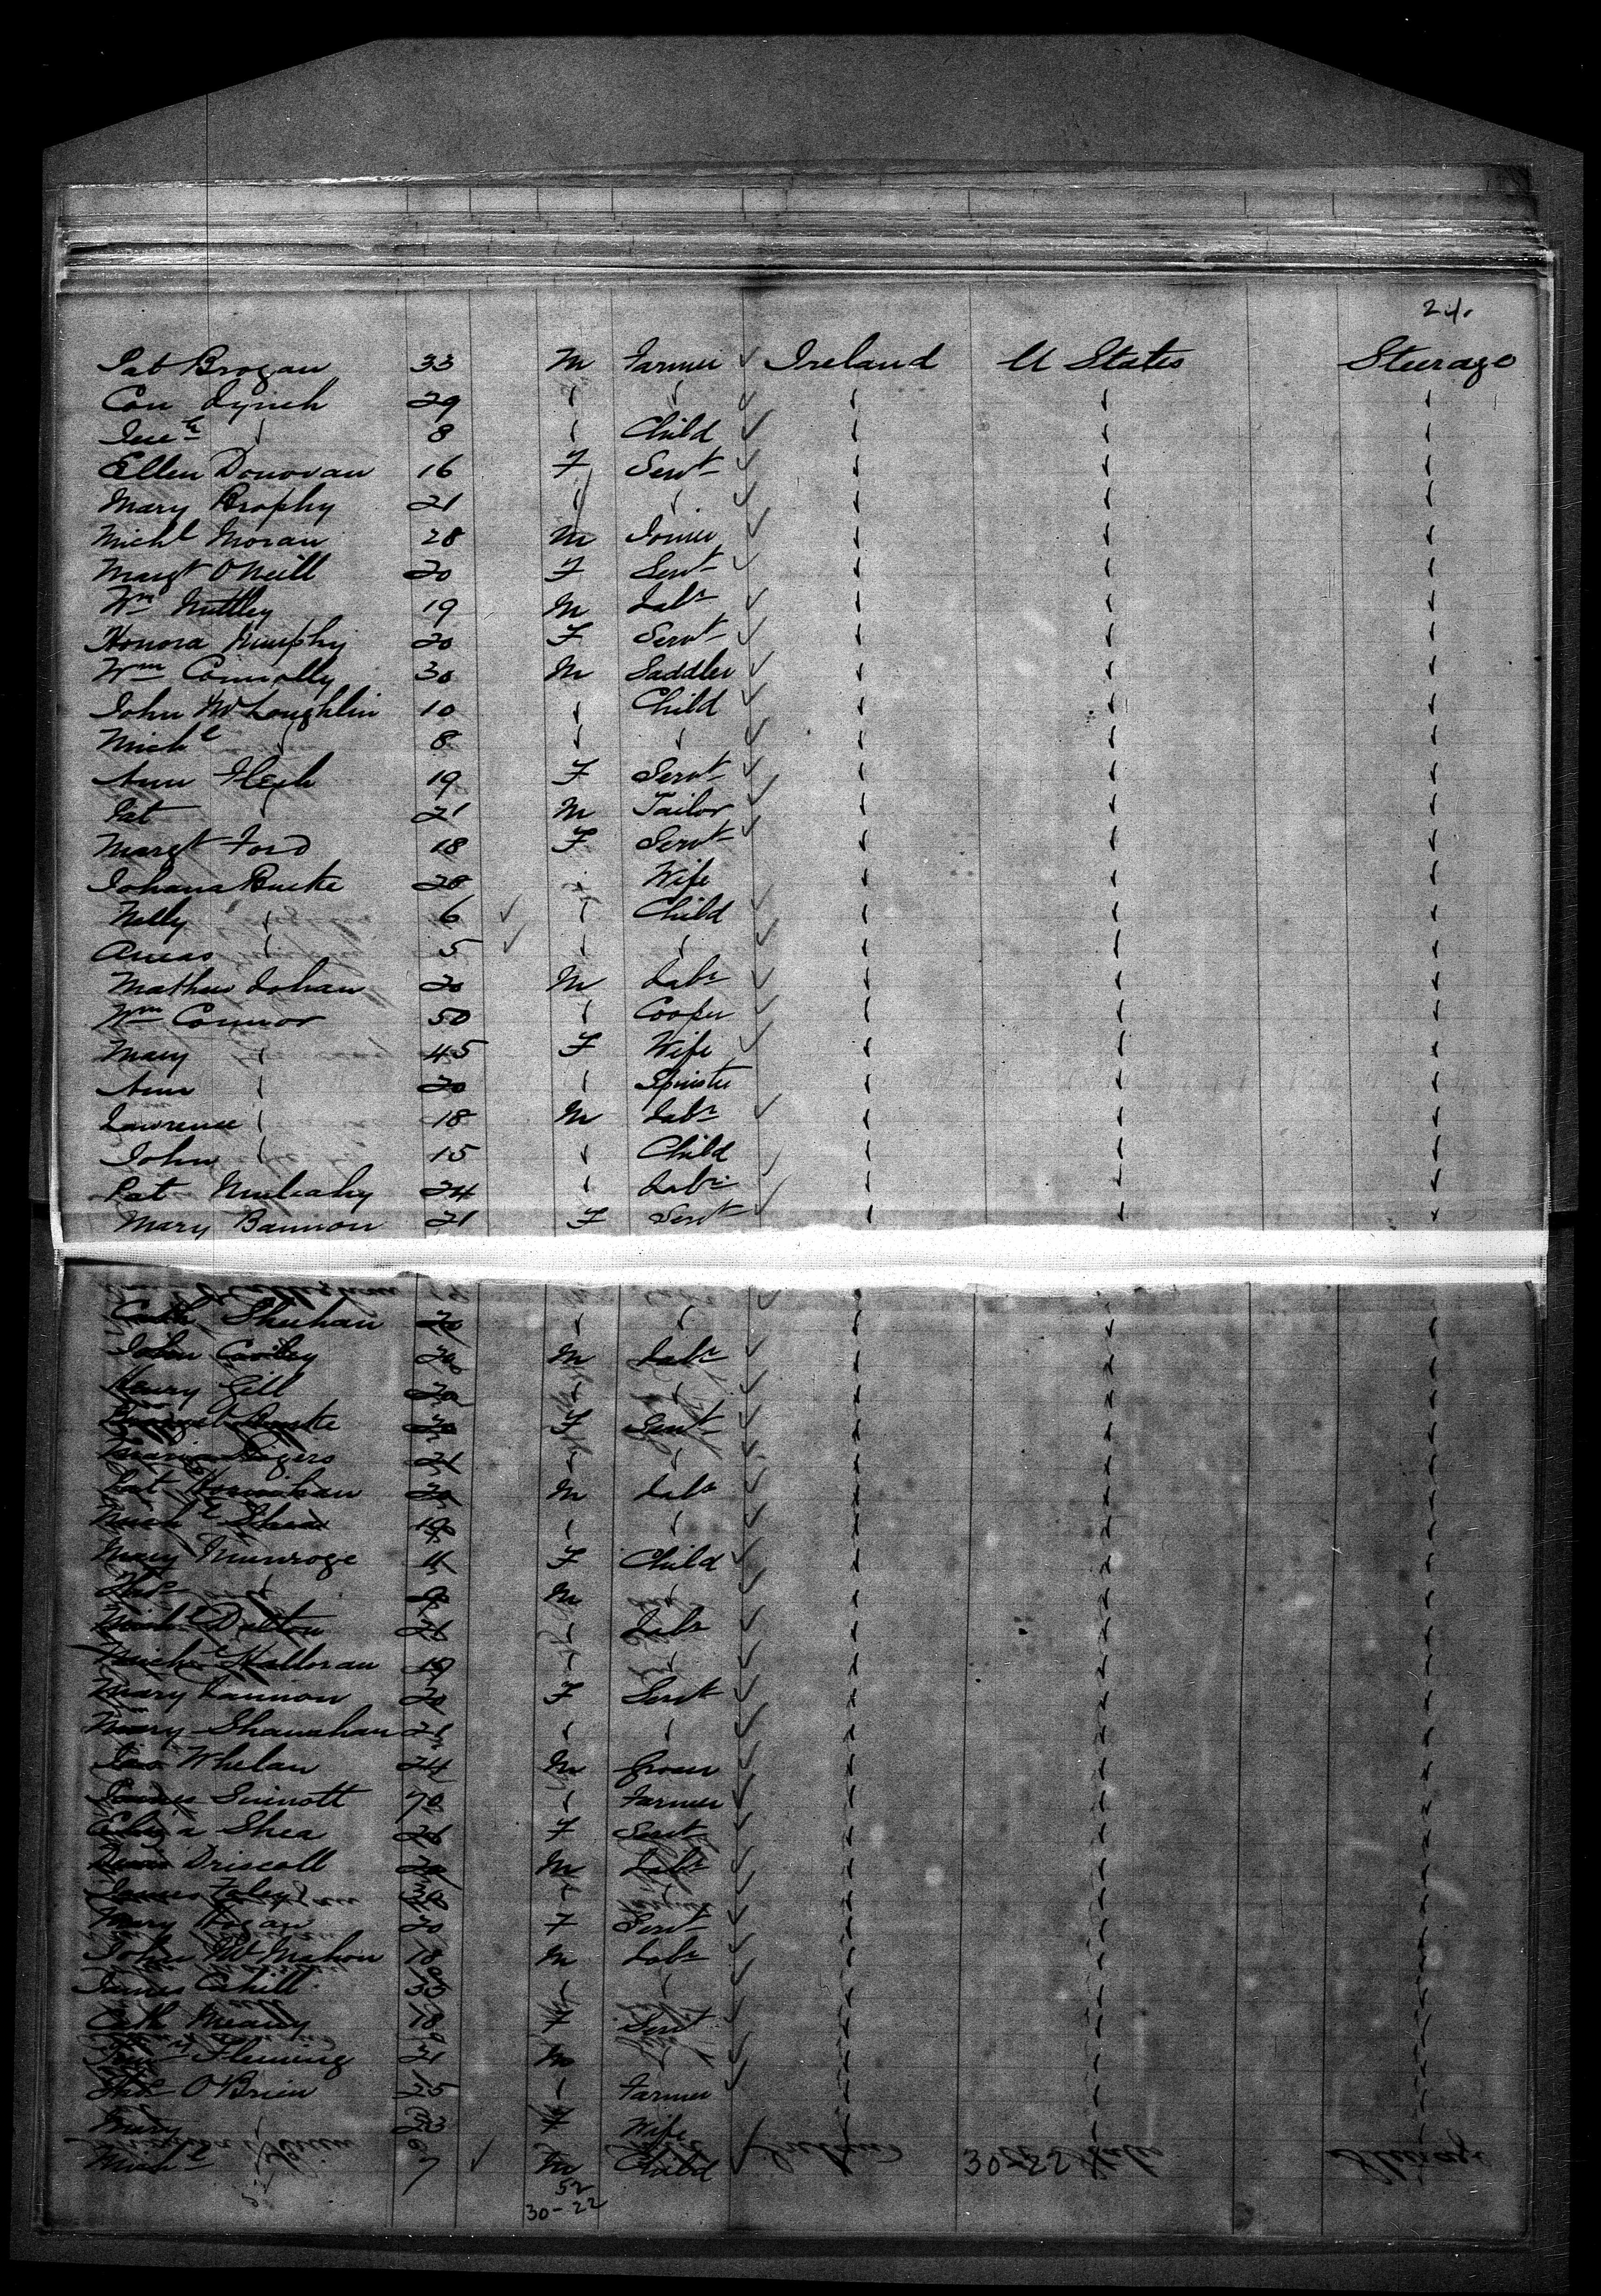 24.
Pat Brogan 33 M Farmer ✓ Ireland U States Steerage
Con Lynch 29
8 Child
Ellen Donovan 16 F Servt
Mary Brophy 21
Michl Moran 28 M Joiner
Margt O'Neill 20 F Servt
Wm Nuttley 19 M Labr
Honora Murphy 20 F Servt
Wm Connolly 30 M Saddler
John McLoughlin 10 Child
Michl 8
Ann 19 F Servt
Pat 21 M Tailor
Margt Ford 18 F Servt
Johana Burke 28 Wife
Nelly 6 Child
5
Mathew Lohan 20 M Labr
Wm Connor 50 Cooper
Mary 45 F Wife
Ann 20 Spinster
Lawrence 18 M Labr
John 15 Child
Pat Mulcahy 24 Labr
Mary Bannon 21 F Servt
Cath Sheehan 20
John 20 M Labr
Henry Gill 20
Burke 20 F Servt
Maria Rogers 21
Pat 20 M Labr
Michl Shea 19
Mary Munroge 11 F Child
Thos 9 M
Michl Dalton 21 Labr
Michl Halloran 19
Mary Lannon 20 F Servt
Mary Shanahan 21
Whelan 24 M Groom
James Sinnott 70 Farmer
Eliza Shea 21 F Servt
Driscoll 20 M Labr
James Foley 30
Mary Hogan 20 F Servt
John McMahon 18 M Labr
James Cahill 33
Cath Meany 18 F Servt
Fleming 21 M
Thos O'Brien 25 Farmer
Mary 23 F Wife
Michl 7 M Child
52
30-22
30-22